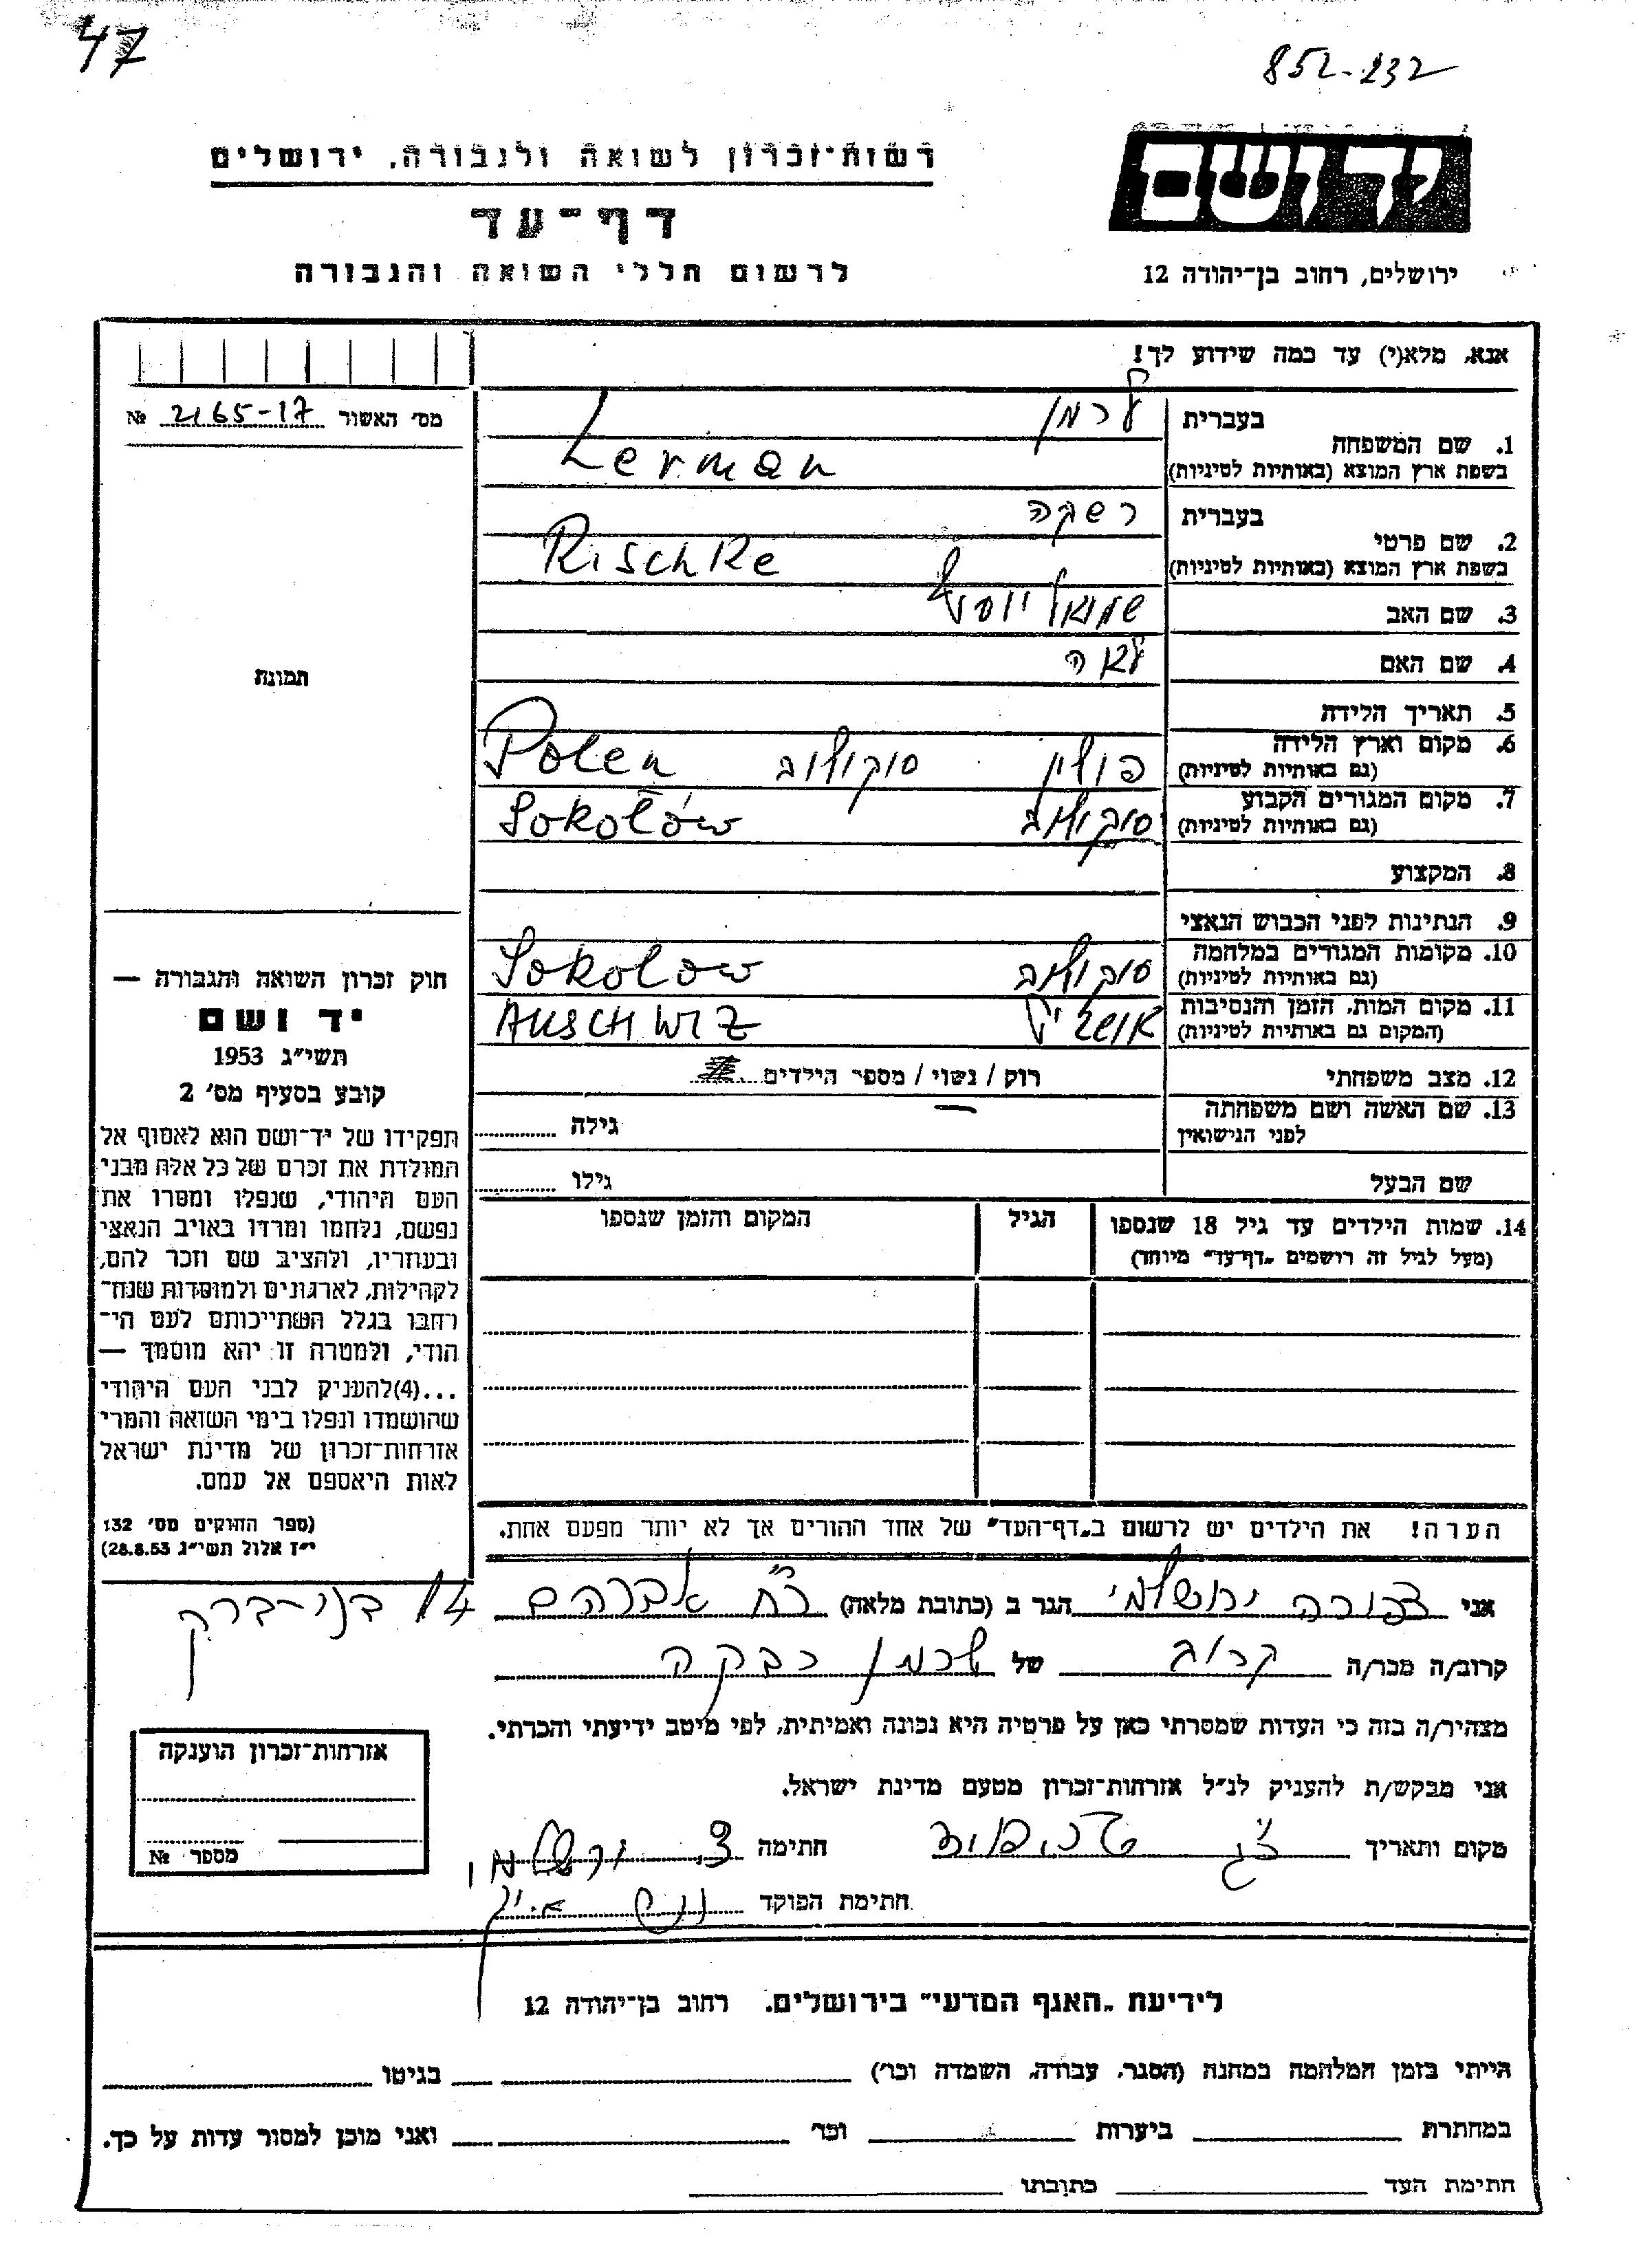 47
852-232
יד ושם
רשות־זכרון לשואה ולגבורה, ירושלים
דף־עד
לרשום חללי השואה והגבורה
ירושלים, רחוב בן־יהודה 12
אנא, מלא(י) עד כמה שידוע לך!
מס׳ האשור 2165-17 №
בעברית לרמן
1. שם המשפחה
בשפת ארץ המוצא (באותיות לטיניות) Lerman
בעברית רשקה
2. שם פרטי
בשפת ארץ המוצא (באותיות לטיניות) Rischke
3. שם האב שמואל יוסף
4. שם האם לאה
תמונה
5. תאריך הלידה
6. מקום וארץ הלידה פולין סוקולוב Polen
(גם באותיות לטיניות)
7. מקום המגורים הקבוע סוקולוב Sokołów
(גם באותיות לטיניות)
8. המקצוע
9. הנתינות לפני הכבוש הנאצי
10. מקומות המגורים במלחמה סוקולוב Sokolow
(גם באותיות לטיניות)
11. מקום המות, הזמן והנסיבות AUSCHWIZ
(המקום גם באותיות לטיניות)
12. מצב משפחתי רוק / נשוי / מספר הילדים
13. שם האשה ושם משפחתה גילה
לפני הנישואין
שם הבעל גילו
14. שמות הילדים עד גיל 18 שנספו הגיל המקום והזמן שנספו
(מעל לגיל זה רושמים „דף־עד״ מיוחד)
חוק זכרון השואה והגבורה —
יד ושם
תשי״ג 1953
קובע בסעיף מס׳ 2
תפקידו של יד־ושם הוא לאסוף אל
המולדת את זכרם של כל אלה מבני
העם היהודי, שנפלו ומסרו את
נפשם, נלחמו ומרדו באויב הנאצי
ובעוזריו, ולהציב שם וזכר להם,
לקהילות, לארגונים ולמוסדות שנח־
רחבו בגלל השתייכותם לעם הי־
הודי, ולמטרה זו יהא מוסמך —
...(4)להעניק לבני העם היהודי
שהושמדו ונפלו בימי השואה והמרי
אזרחות־זכרון של מדינת ישראל
לאות היאספם אל עמם.
(ספר החוקים מס׳ 132
י״ז אלול תשי״ג 28.8.53)
הערה! את הילדים יש לרשום ב„דף־העד״ של אחד ההורים אך לא יותר מפעם אחת.
אני צפורה ירושלמי הגר ב (כתובת מלאה) אברהם 14 בני-ברק
קרוב/ה מכר/ה קרוב של לרמן רבקה
מצהיר/ה בזה כי העדות שמסרתי כאן על פרטיה היא נכונה ואמיתית, לפי מיטב ידיעתי והכרתי.
אני מבקש/ת להעניק לנ״ל אזרחות־זכרון מטעם מדינת ישראל.
מקום ותאריך חתימה
חתימת הפוקד
אזרחות־זכרון הוענקה
מספר №
לידיעת „האגף המדעי״ בירושלים. רחוב בן־יהודה 12
הייתי בזמן המלחמה במחנה (הסגר, עבודה, השמדה וכו׳) בגיטו
במחתרת ביערות וכו׳ ואני מוכן למסור עדות על כך.
חתימת העד כתובתו